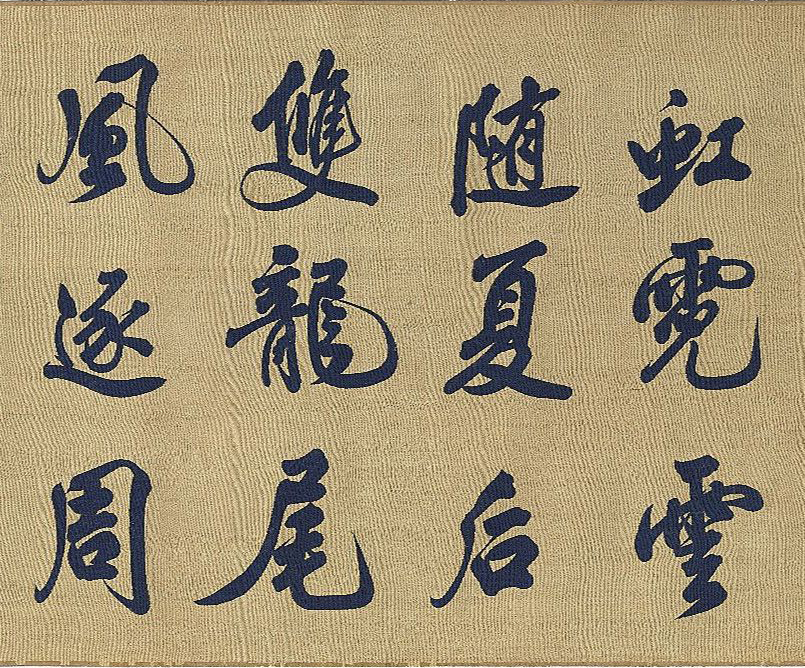 虹霓雲
随夏后
雙龍尾
風逐周